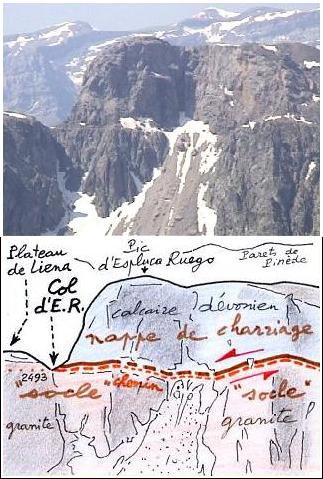 Plateau
de Liena
Col
d'E.R.
Pic
d'Espluca Ruego
Parets de
Pinède
calcaire dévonien
nappe de charriage
2493
"socle"
chemin
"socle"
granite
granite